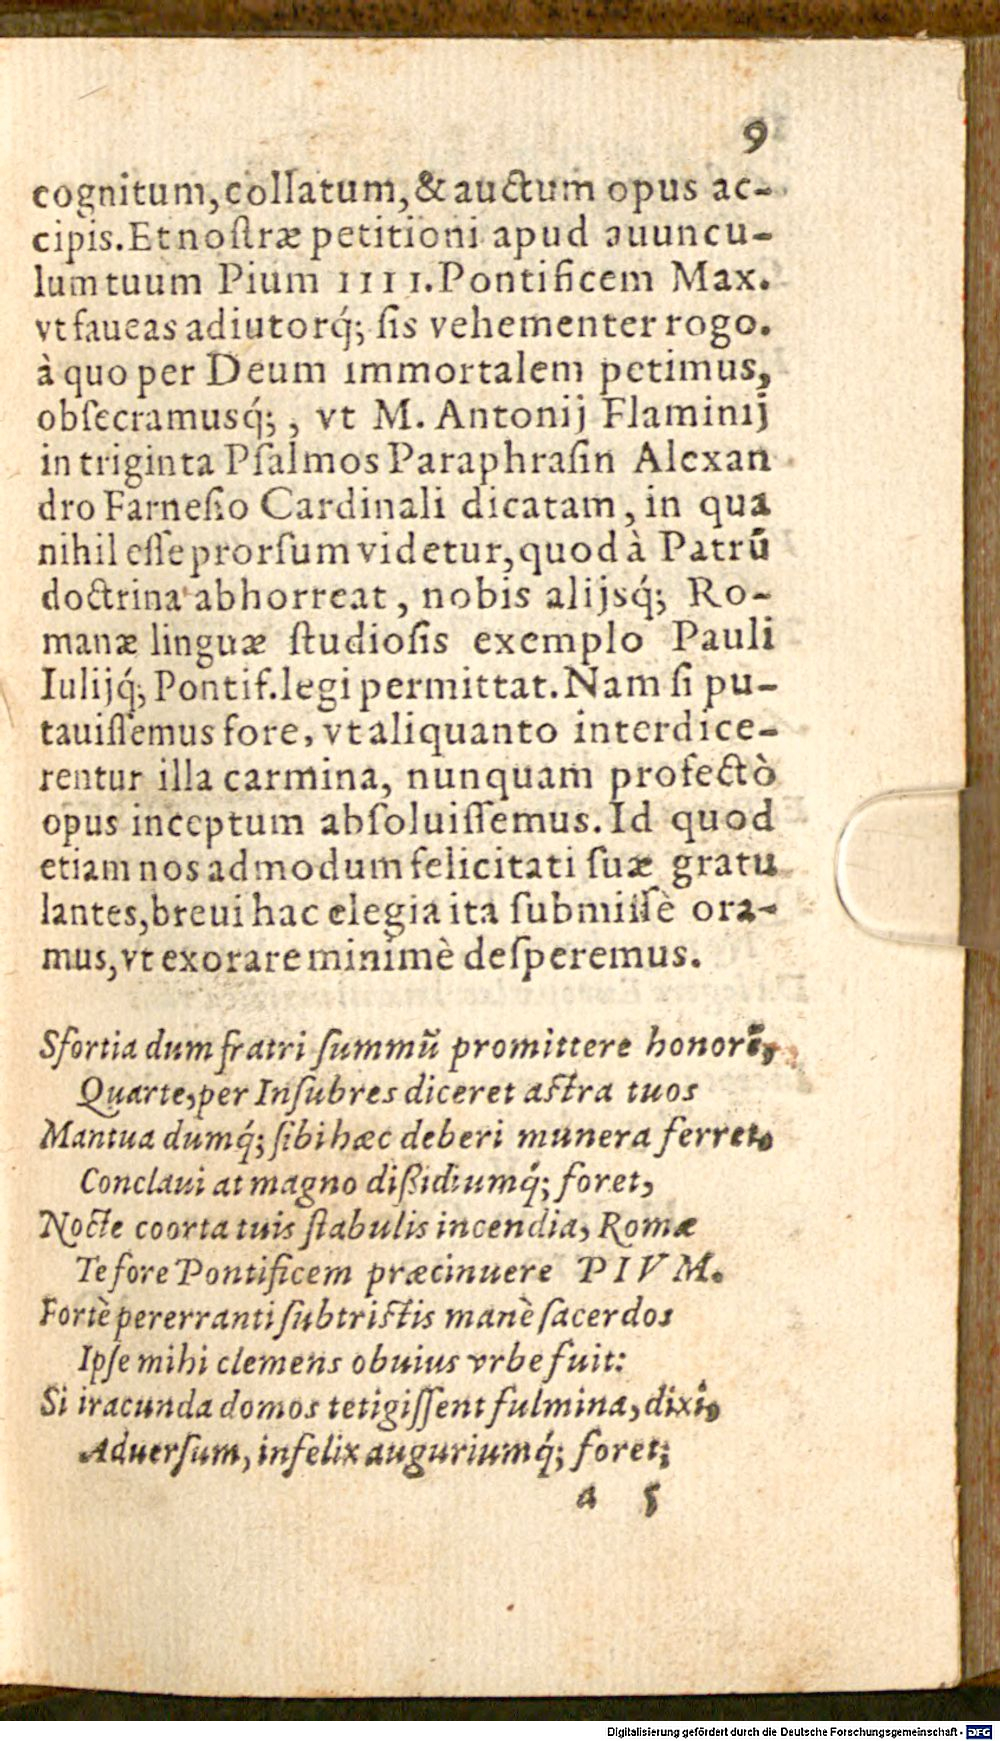 9
cognitum, collatum, & auctum opus ac-
cipis. Et nostræ petitioni apud auuncu-
lum tuum Pium IIII. Pontificem Max.
vt faueas adiutorq́; sis vehementer rogo.
à quo per Deum immortalem petimus,
obsecramusq́;, vt M. Antonij Flaminij
in triginta Psalmos Paraphrasin Alexan
dro Farnesio Cardinali dicatam, in qua
nihil esse prorsum videtur, quod à Patrũ
doctrina abhorreat, nobis alijsq́; Ro-
manæ linguæ studiosis exemplo Pauli
Iulijq́; Pontif. legi permittat. Nam si pu-
tauissemus fore, vt aliquanto interdice-
rentur illa carmina, nunquam profectò
opus inceptum absoluissemus. Id quod
etiam nos admodum felicitati suæ gratu
lantes, breui hac elegia ita submissè ora-
mus, vt exorare minimè desperemus.
Sfortia dum fratri summũ promittere honorẽ,
Quarte, per Insubres diceret astra tuos
Mantua dumq́; sibi hæc deberi munera ferret,
Conclaui at magno dißidiumq́; foret,
Nocte coorta tuis stabulis incendia, Romæ
Te fore Pontificem præcinuere PIVM.
Fortè pererranti subtristis manè sacerdos
Ipse mihi clemens obuius vrbe fuit:
Si iracunda domos tetigissent fulmina, dixi,
Aduersum, infelix auguriumq́; foret;
a 5
Digitalisierung gefördert durch die Deutsche Forschungsgemeinschaft - DFG